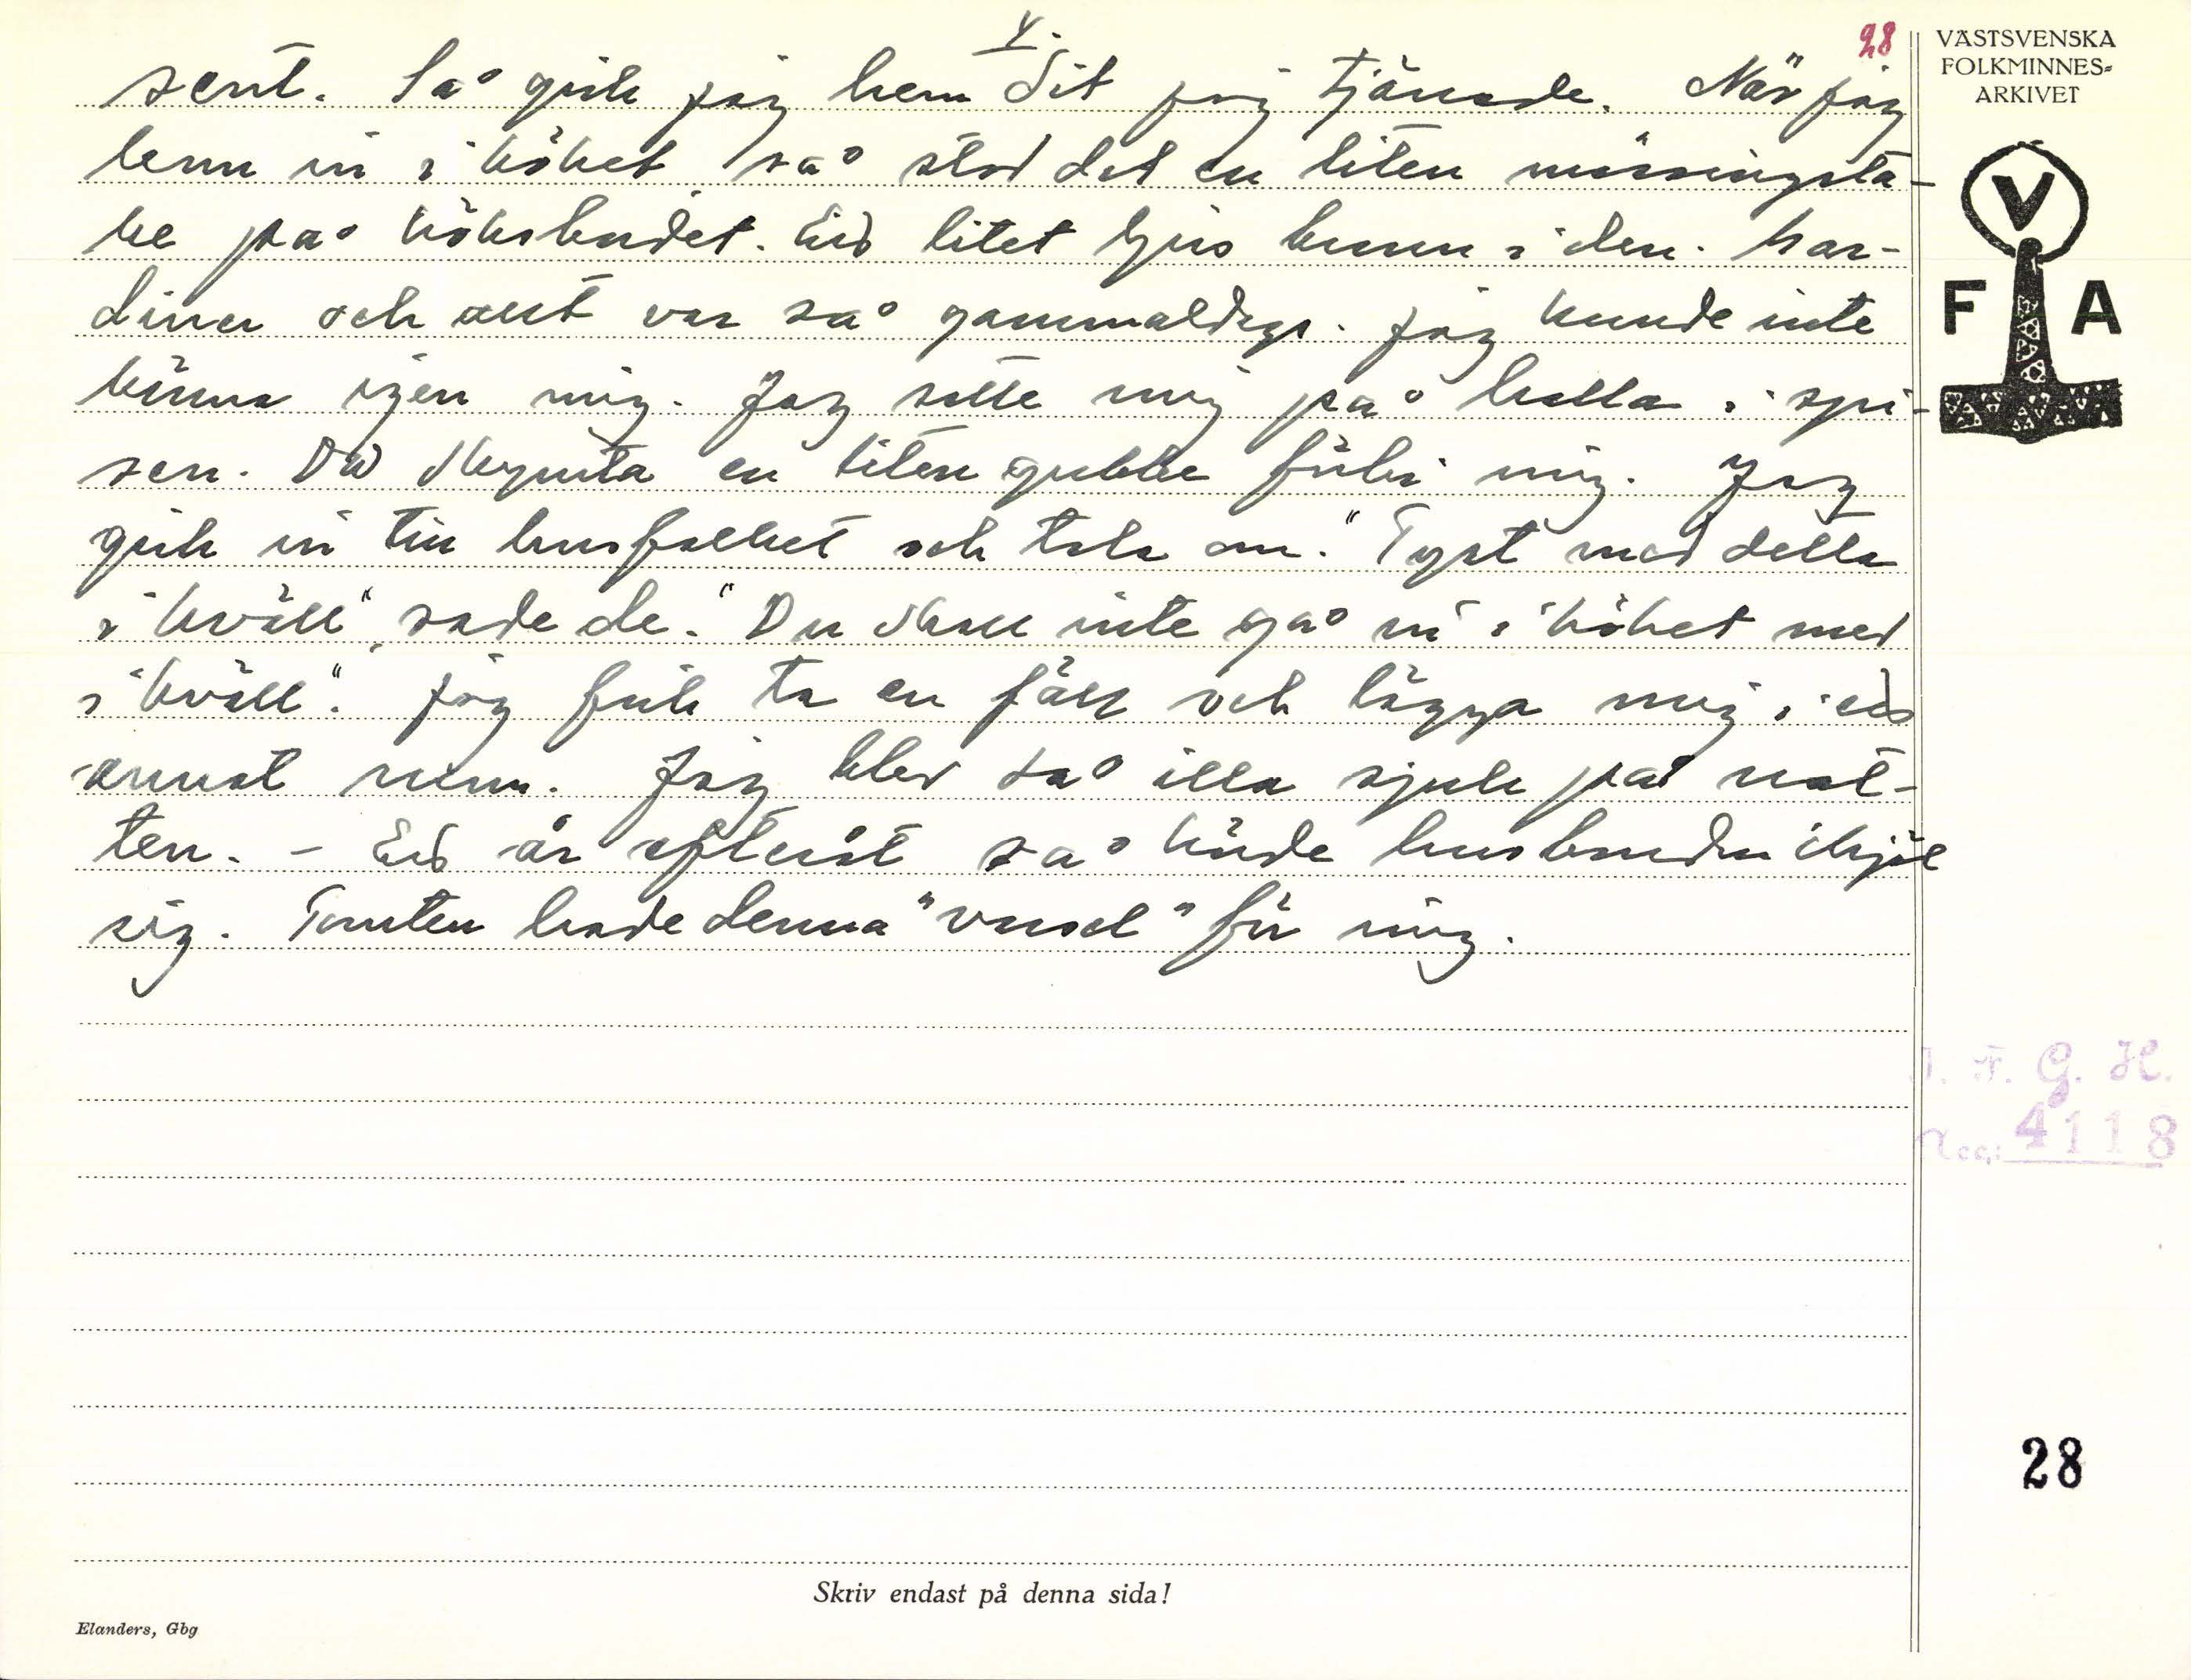 V.
28
sent. Så gick jag hem dit jag tjänade. När jag
kom in i köket, så stod det en liten mässingsta-
ke på köksbordet. Ett litet ljus brann i den. Gar-
diner och allt var så gammaldags. Jag kunde inte
känna igen mig. Jag satte mig på hälla i spi-
sen. Då skymta en liten gubbe förbi mig. Jag
gick in till husfolket och tala om. "Tyst med detta
i kväll", sade de. "Du skall inte gå in i köket mer
i kväll". Jag fick ta en fäll och lägga mig i ett
annat rum. Jag blev så illa sjuk på nat-
ten. - Ett år efteråt så hände husbonden ihjäl
sig. Tomten hade denna "varsel" för mig.
VÄSTSVENSKA
FOLKMINNES-
ARKIVET
V
F A
I. F. G. H.
Acc: 4118
28
Skriv endast på denna sida!
Elanders, Gbg